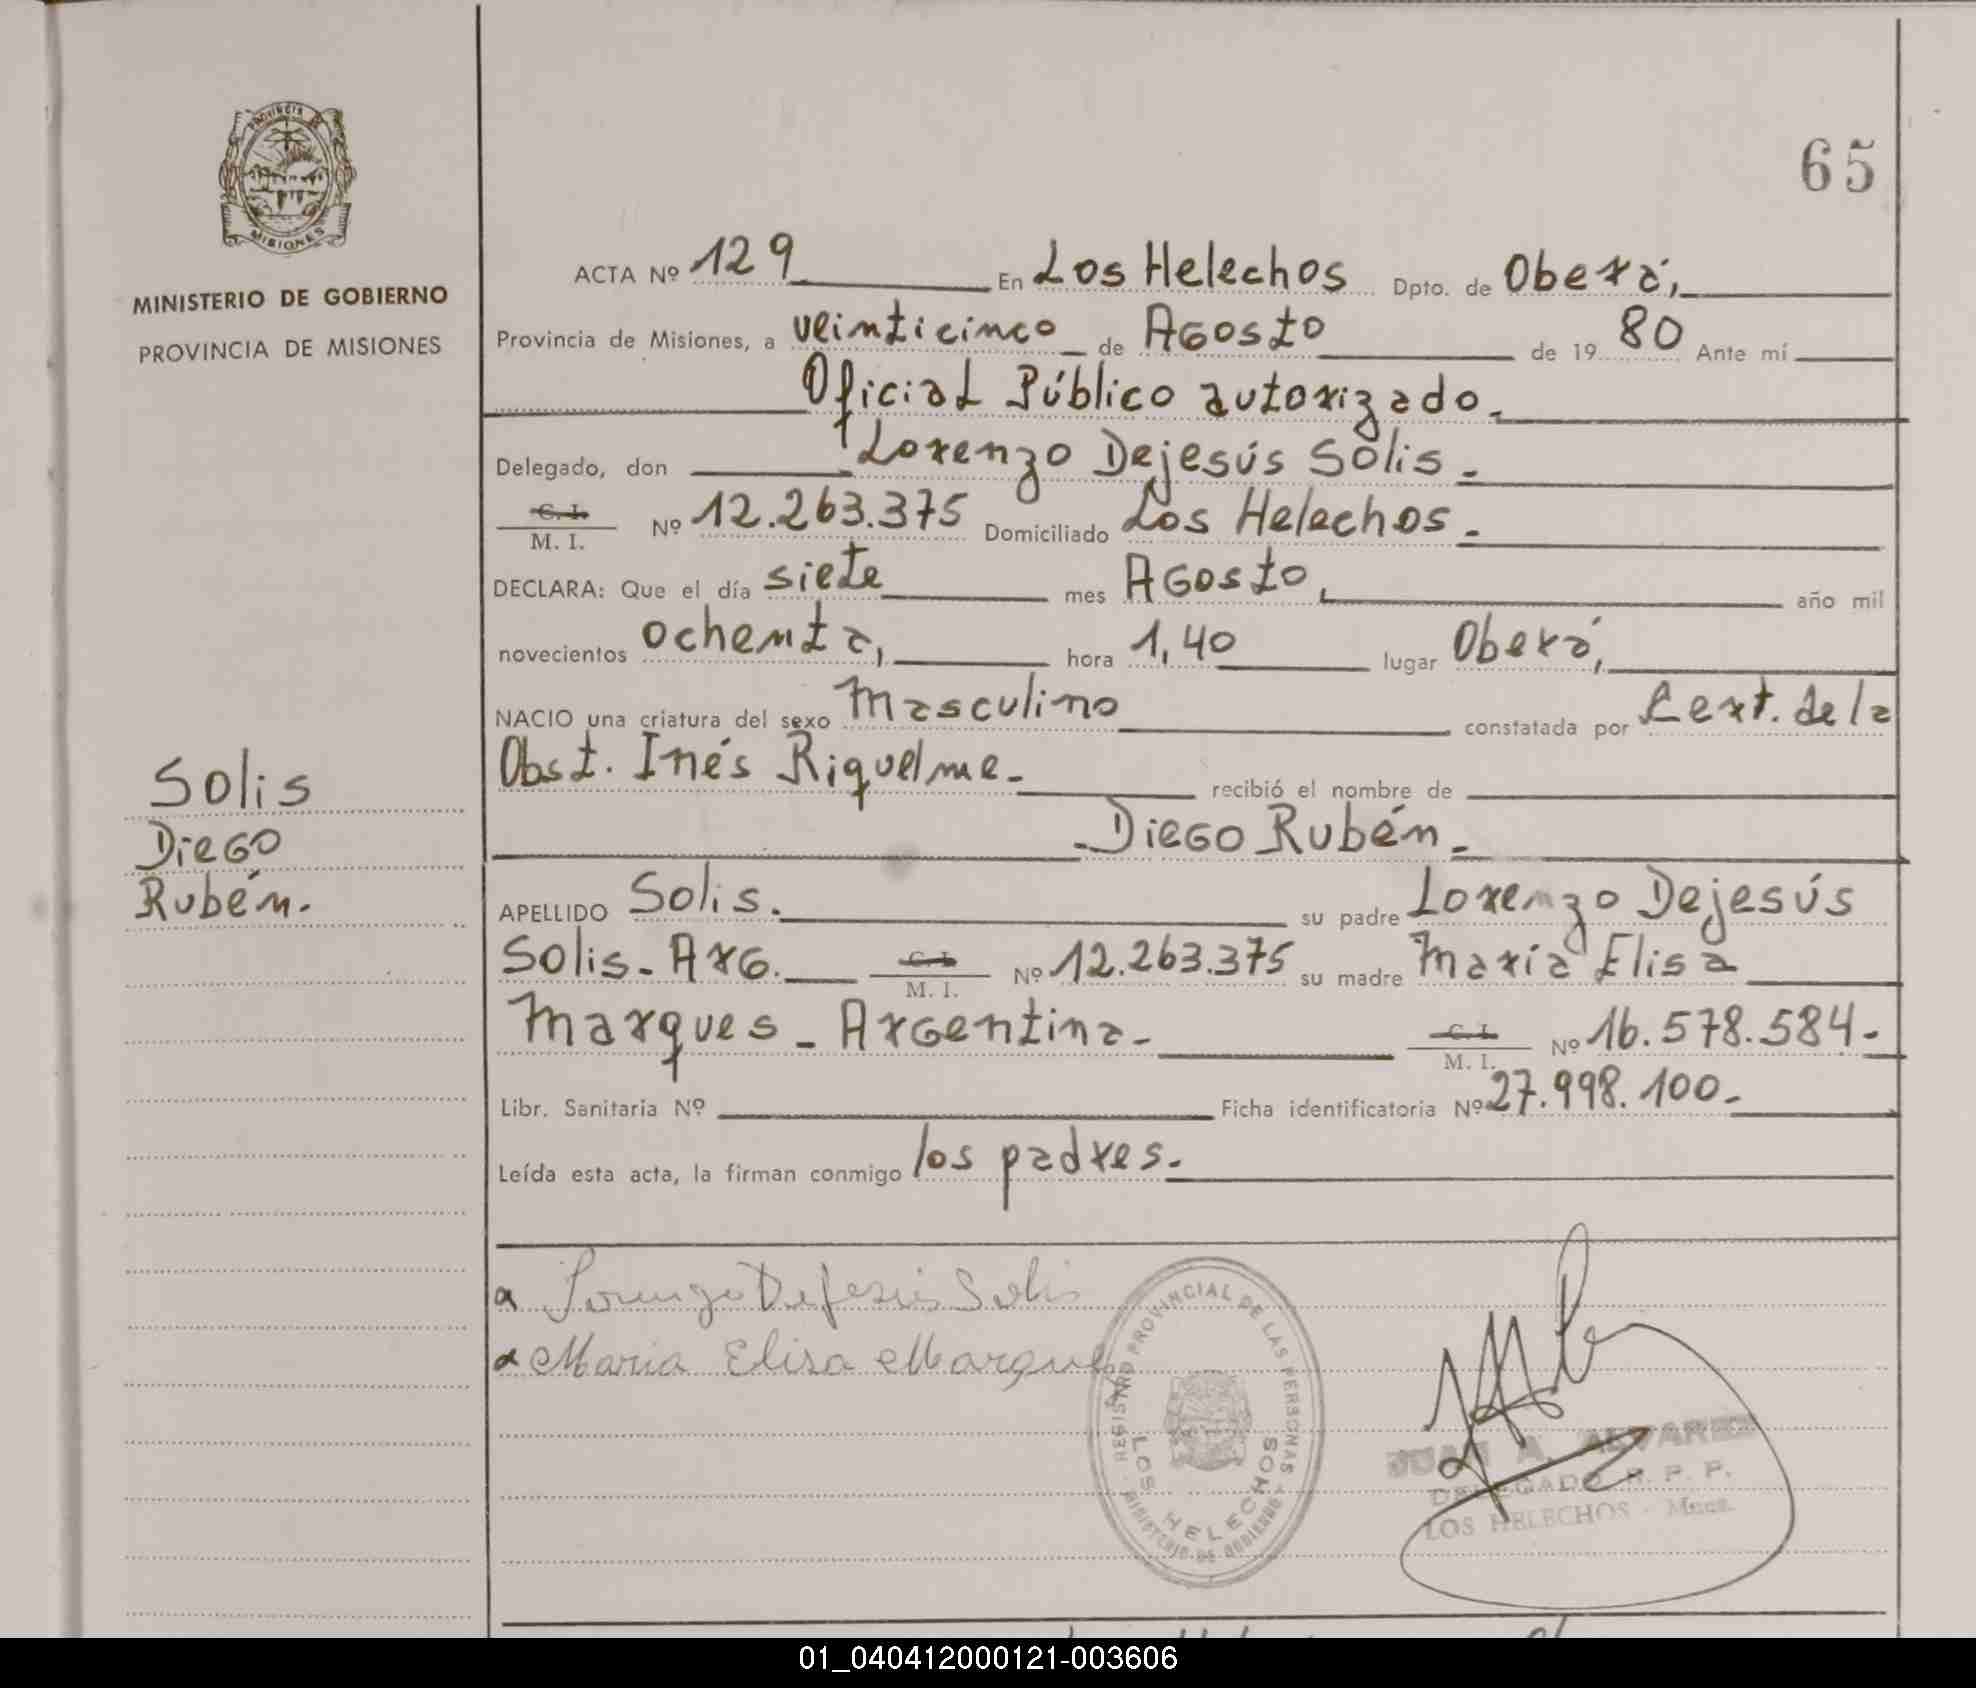 PROVINCIA D
MISIONES
MINISTERIO DE GOBIERNO
PROVINCIA DE MISIONES
Solis
Diego
Rubén.
65
ACTA Nº 129 En Los Helechos Dpto. de Oberá,
Provincia de Misiones, a veinticinco de Agosto de 19 80 Ante mí
Oficial Público autorizado.
Delegado, don Lorenzo Dejesús Solis.
C. I.
M. I. Nº 12.263.375 Domiciliado Los Helechos.
DECLARA: Que el día siete mes Agosto, año mil
novecientos ochenta, hora 1,40 lugar Oberá,
NACIO una criatura del sexo Masculino constatada por Cert. de la
Obst. Inés Riquelme. recibió el nombre de
Diego Rubén.
APELLIDO Solis. su padre Lorenzo Dejesús
Solis - Arg. C. I.
M. I. Nº 12.263.375 su madre María Elisa
Marques - Argentina. C. I.
M. I. Nº 16.578.584.
Libr. Sanitaria Nº Ficha identificatoria Nº 27.998.100.
Leída esta acta, la firman conmigo los padres.
Lorenzo Dejesús Solis
Maria Elisa Marques
REGISTRO PROVINCIAL DE LAS PERSONAS
LOS HELECHOS
MINISTERIO DE GOBIERNO
JUAN A. ALVAREZ
DELEGADO R. P. P.
LOS HELECHOS - Mnes.
01_040412000121-003606